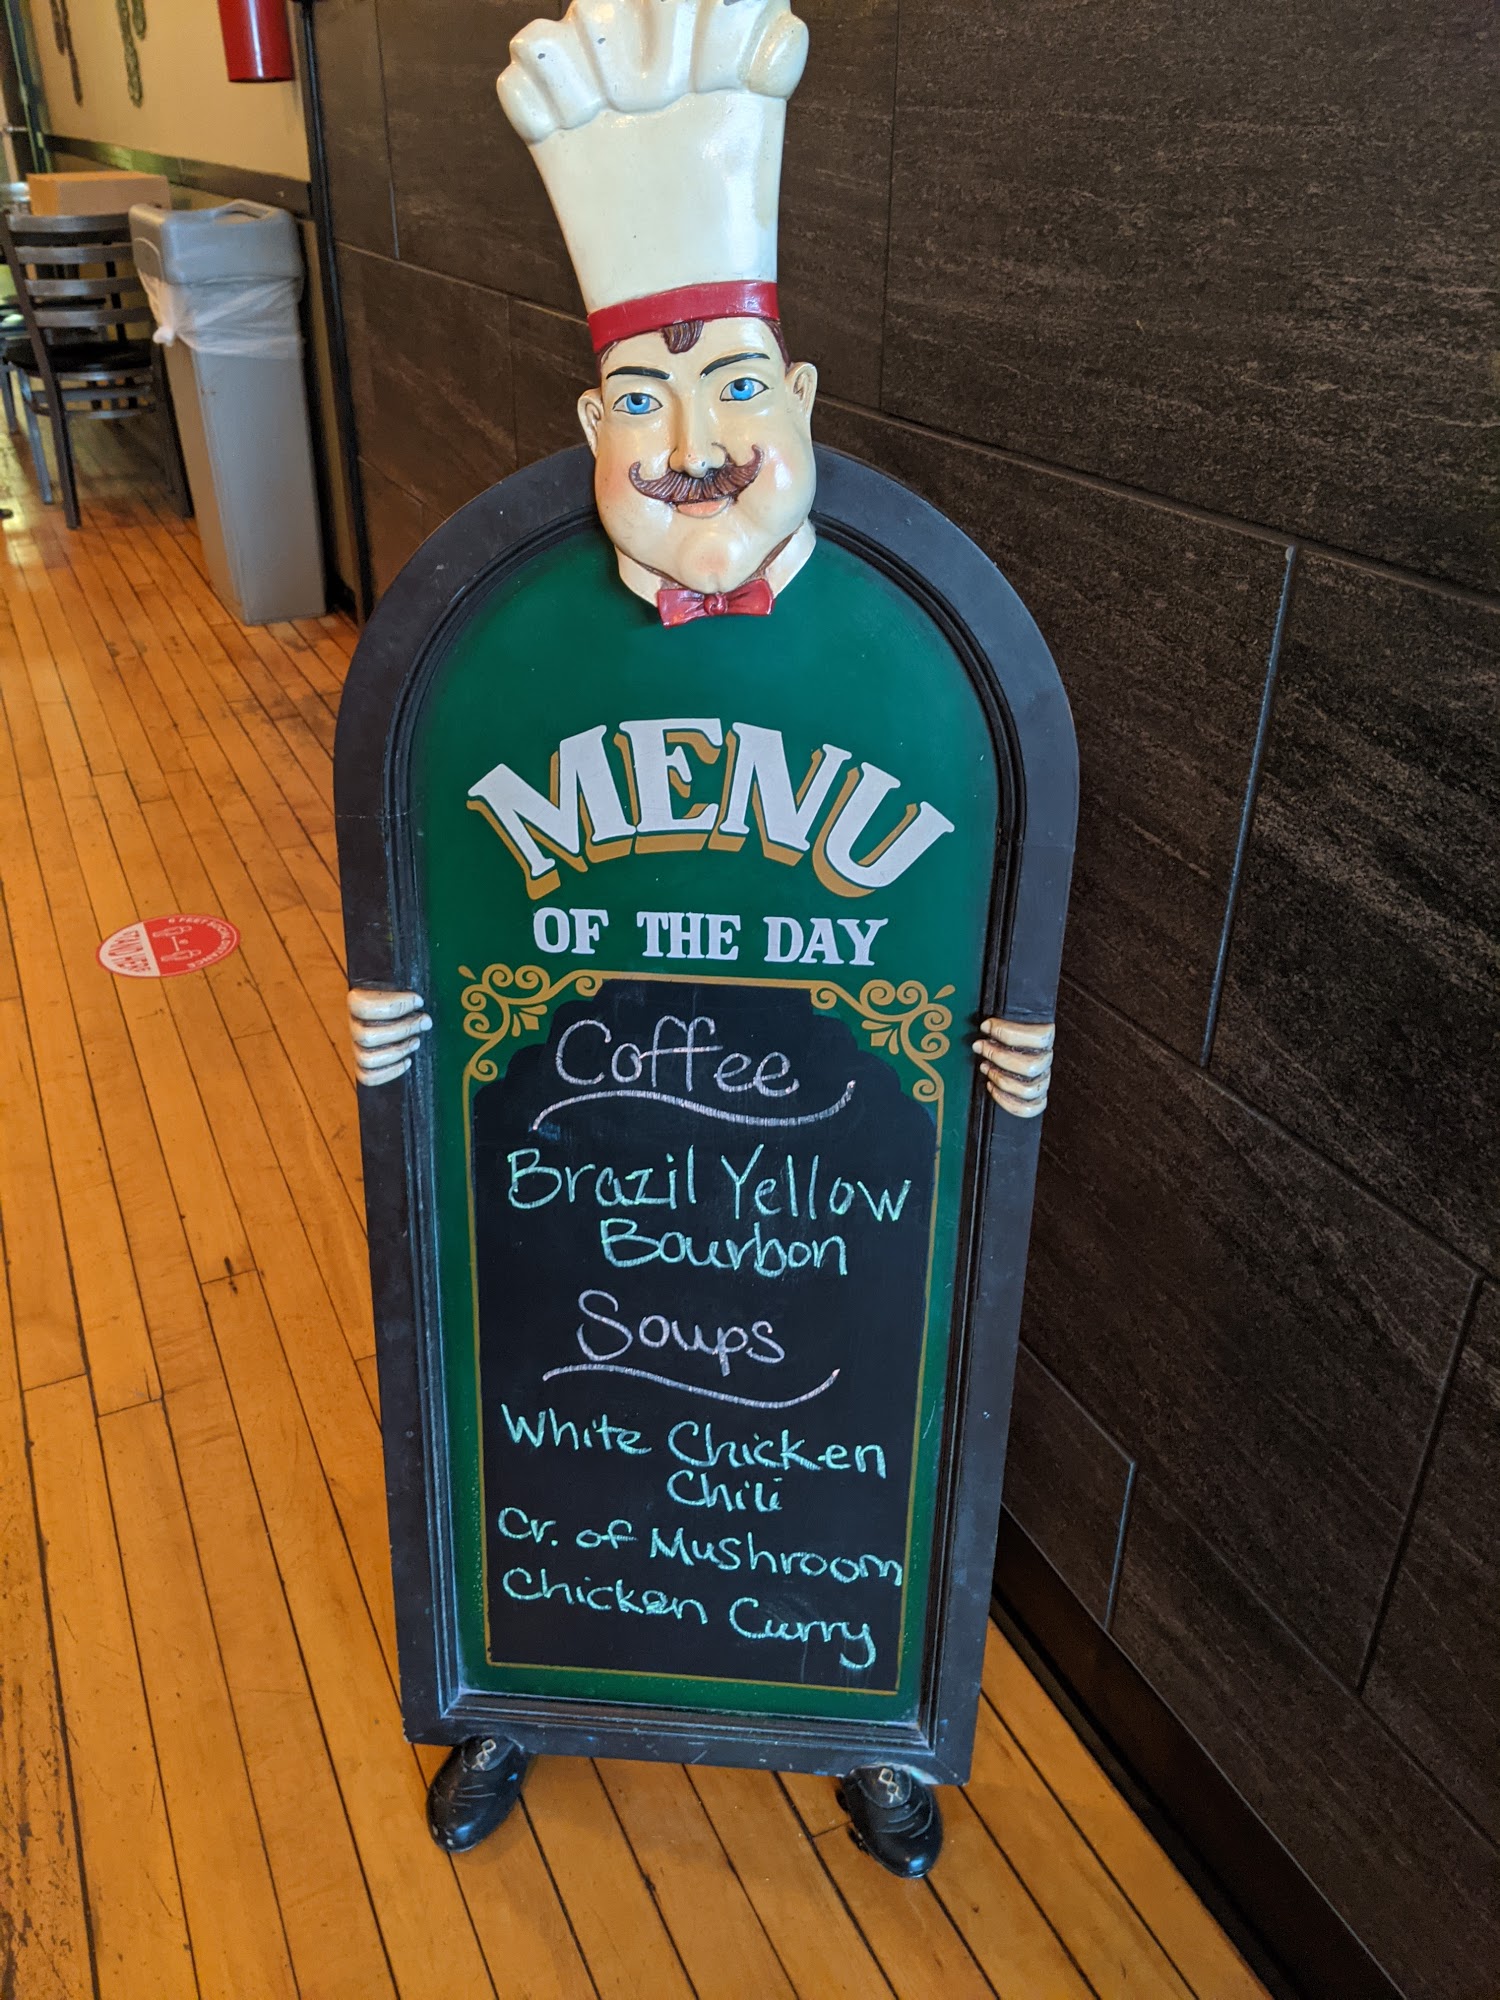 MENU
OF THE DAY
Coffee
Brazil Yellow
Bourbon
Soups
White Chicken
Chili
Cr. of Mushroom
Chicken Curry
6 FEET SOCIAL DISTANCE
STAND HERE